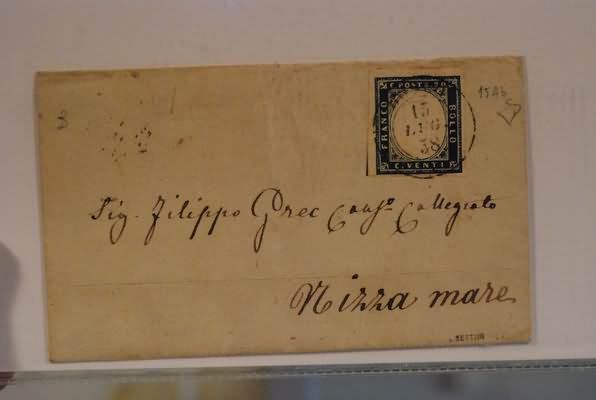 C. POSTE. 20
FRANCO
BOLLO
C. VENTI
15
LUG
58
15Ab
Sig. Filippo Grec Caus.o Collegiato
Nizza mare